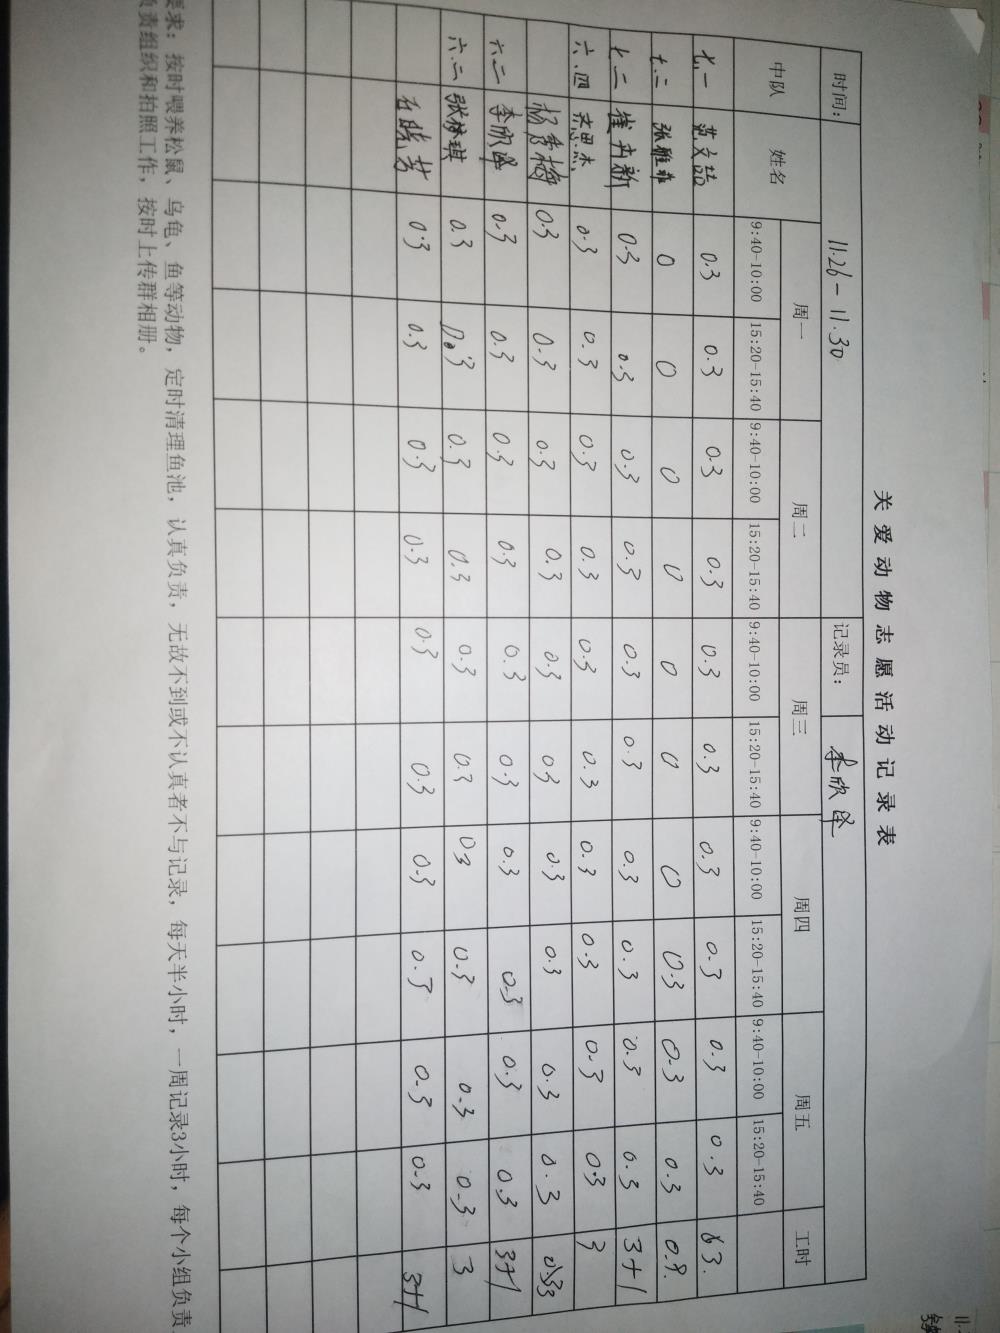 关爱动物志愿活动记录表
时间： 11.26-11.30 记录员： 李欣泽
中队 姓名 周一 周二 周三 周四 周五 工时
9:40-10:00 15:20-15:40 9:40-10:00 15:20-15:40 9:40-10:00 15:20-15:40 9:40-10:00 15:20-15:40 9:40-10:00 15:20-15:40
七.一 范文喆 0.3 0.3 0.3 0.3 0.3 0.3 0.3 0.3 0.3 0.3 3.
七.二 张雅菲 0 0 0 0 0 0 0 0.3 0.3 0.3 0.9.
七二 崔卉新 0.3 0.3 0.3 0.3 0.3 0.3 0.3 0.3 0.3 0.3 3+1
六.四 0.3 0.3 0.3 0.3 0.3 0.3 0.3 0.3 0.3 0.3 3
杨秀梅 0.3 0.3 0.3 0.3 0.3 0.3 0.3 0.3 0.3 0.3
六二 李欣泽 0.3 0.3 0.3 0.3 0.3 0.3 0.3 0.3 0.3 0.3 3+1
六.二 张梦琪 0.3 0.3 0.3 0.3 0.3 0.3 0.3 0.3 0.3 0.3 3
石晓芳 0.3 0.3 0.3 0.3 0.3 0.3 0.3 0.3 0.3 0.3 3+1
要求：按时喂养松鼠、乌龟、鱼等动物，定时清理鱼池，认真负责，无故不到或不认真者不与记录，每天半小时，一周记录3小时，每个小组负责
负责组织和拍照工作，按时上传群相册。